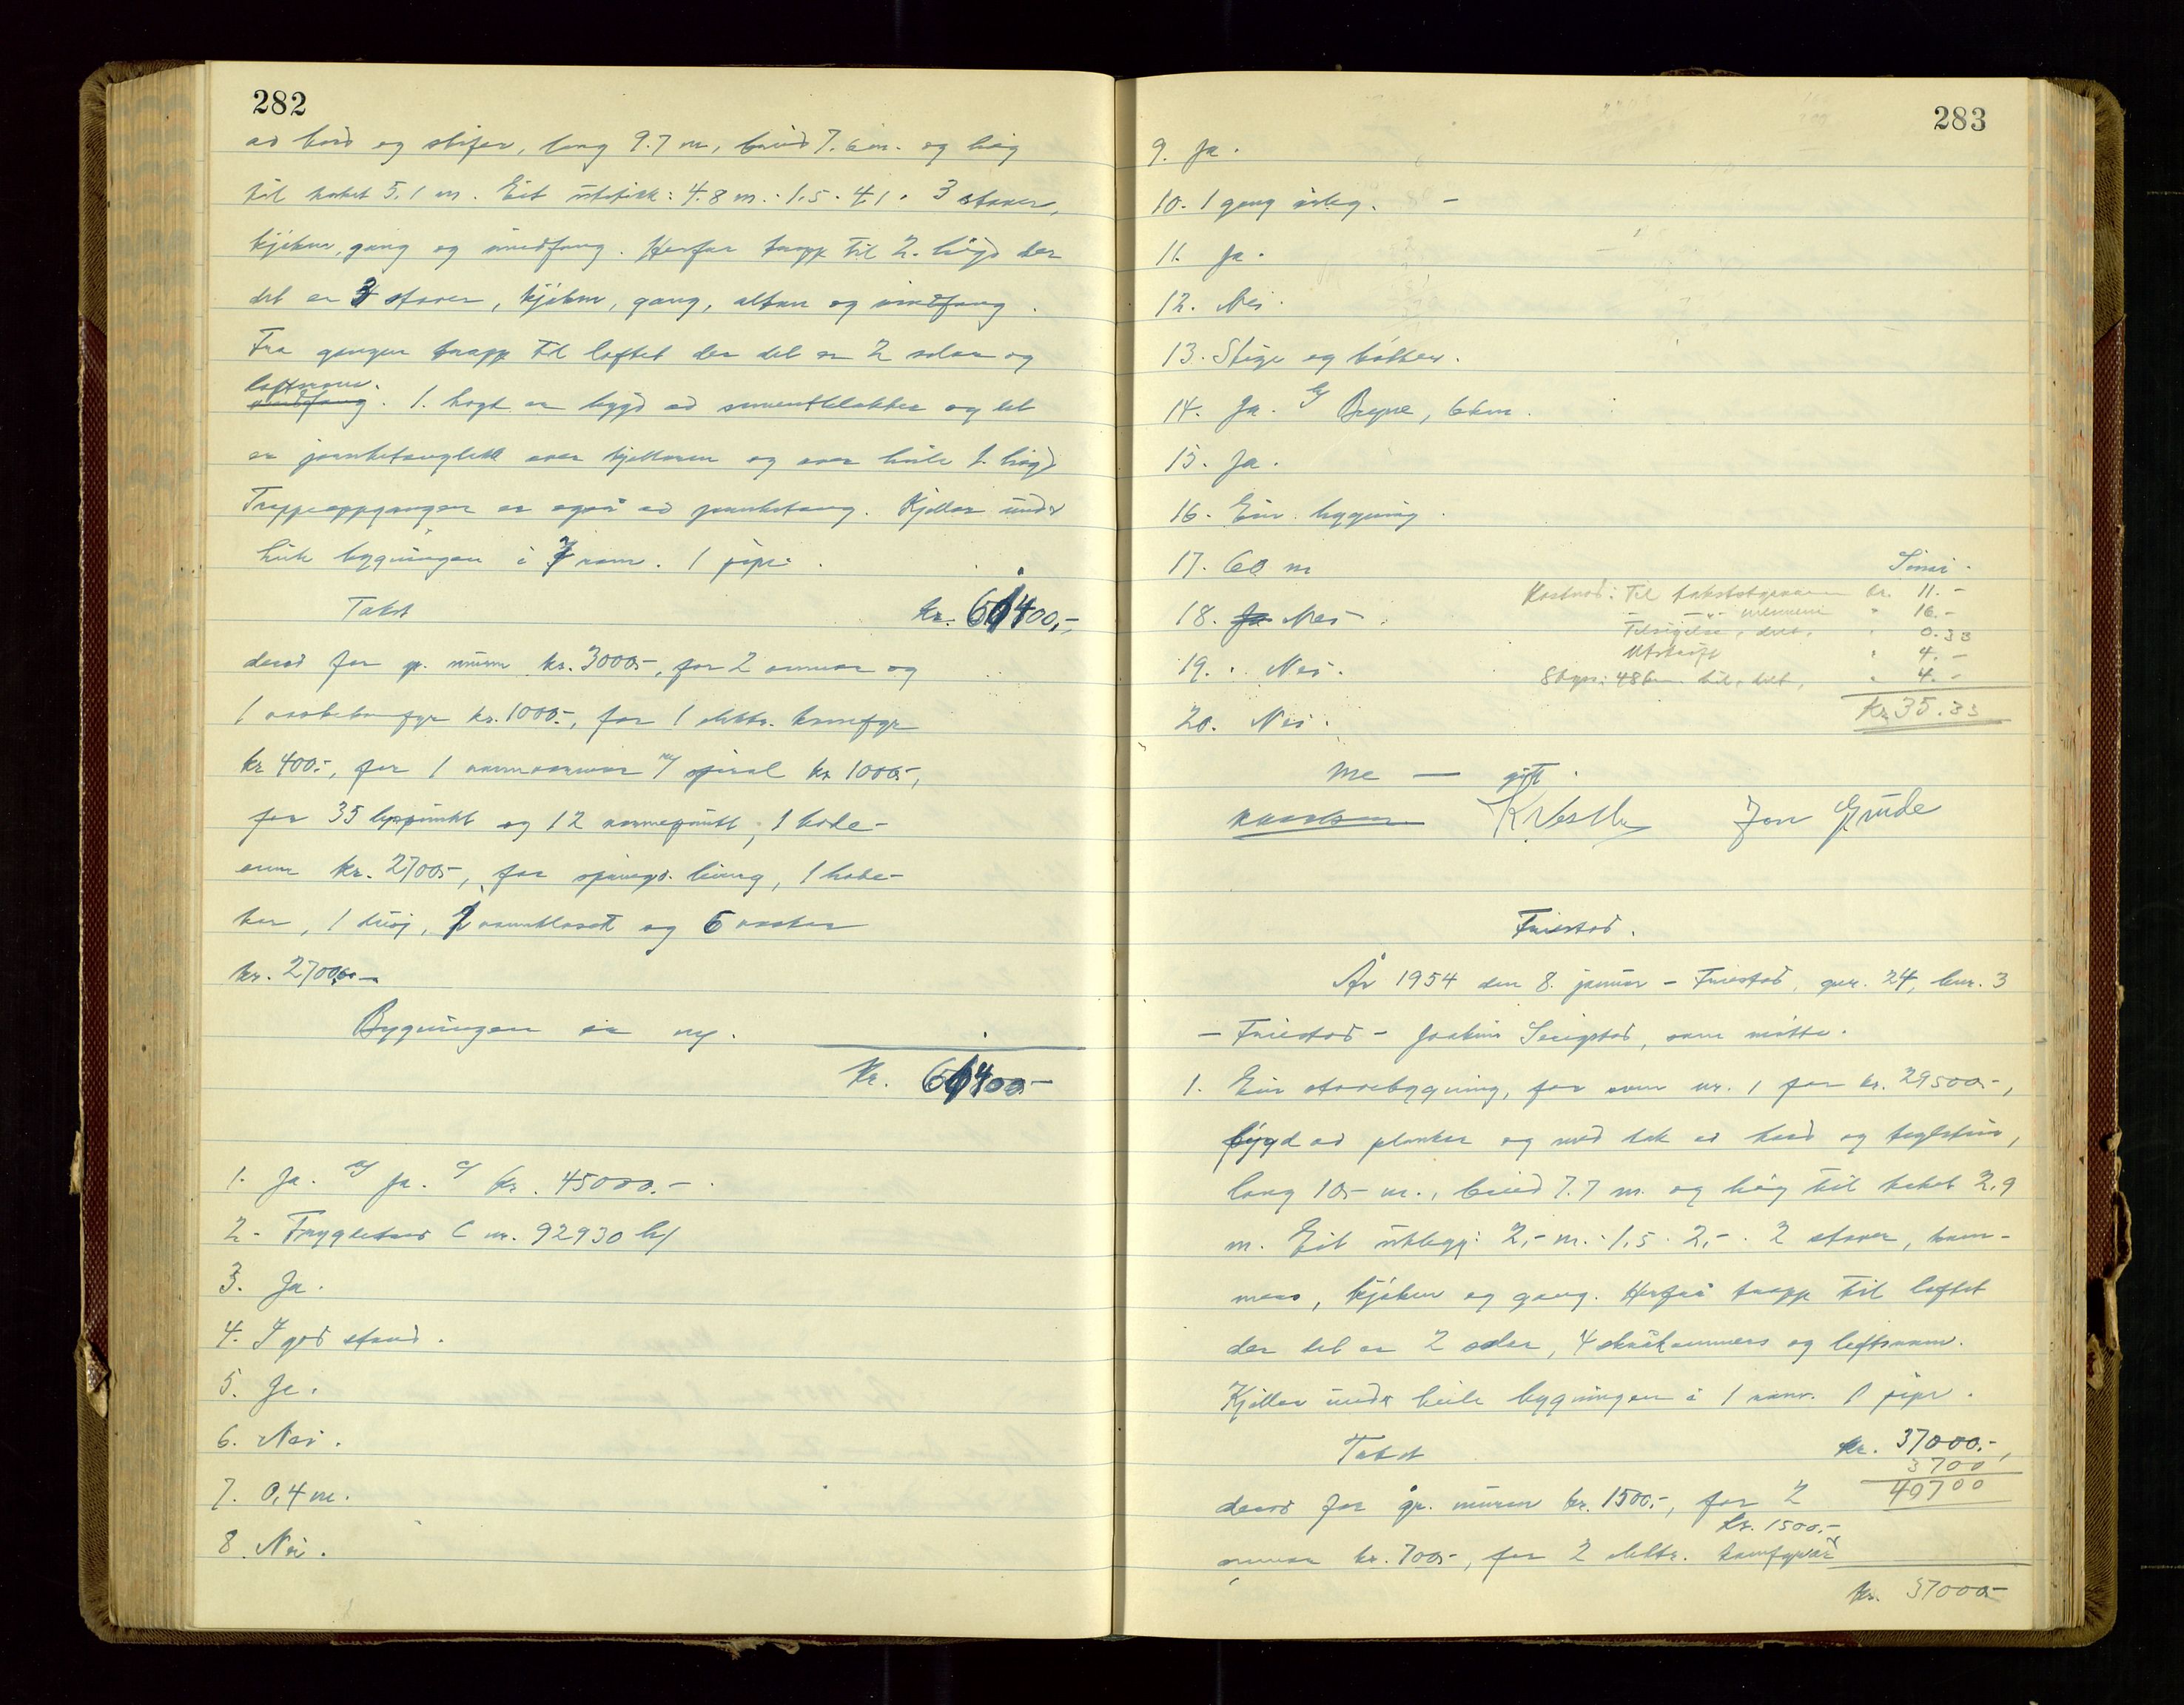 282
av bord og skifer, lang 9.7 m, breid 7.6 m. og høg
til taket 5.1 m. Eit utstikk: 4.8 m. : 1.5 . 4.1. 3 stover,
kjøken, gang og vindfang. Herfrå trapp til 2. høgd der
det er 3 stover, kjøken, gang, altan og vindfang.
Fra gangen trapp til loftet der det er 2 soler og
loftsrom.
vindfang. 1. høgd er bygd av sementblokker og det
er jernbetongdekk over kjellaren og over heile 1. høgd
Trappeoppgangen er også av jernbetong. Kjellar under
heile bygningen i 7 rom. 1 pipe.
Takst kr. 61400,-
derav for gr. muren kr. 3000.-, for 2 omnar og
1 vaskekomfyr kr. 1000.-, for 1 elektr. komfyr
kr 400.-, for 1 varmvannar m/ spiral kr 1000.-,
for 35 lyspunkt og 12 varmepunkt, 1 bade-
omn kr. 2700.-, for spreng. leiing, 1 bade-
kar, 1 dusj, 2 vannklosett og 6 vasker
kr. 2700.-
Bygningen er ny.
Kr. 61400.-
1. Ja. b/ Ja. c/ kr. 45000.-
2. Trygdelaus C nr. 92930 b/
3. Ja.
4. I god stand.
5. Ja.
6. Nei.
7. 0,4 m.
8. Nei.
283
9. Ja.
10. 1 gang årleg.
11. Ja.
12. Nei.
13. Stige og bøtter.
14. Ja. b/ Bryne, 6 km.
15. Ja.
16. Ein bygning.
17. 60 m
18. Ja Nei.
19. Nei.
20. Nei.
Kostnad: Til takstutgreiaren kr. 11.-
— " — mennene " 16.-
Tilsigelse, delt, " 0.33
Utskrift " 4.-
Skyss: 48 km bil, delt, " 4.-
Kr 35.33
Me — gitt.
K Vestly Jon Grude
Friestad.
År 1954 den 8. januar - Friestad, gnr. 24, bnr. 3
- Friestad - Joakim Serigstad, som møtte.
1. Ein stovebygning, før omn nr. 1 for kr. 29500.-,
bygd av planker og med tak av bord og taglstein,
lang 10,- m., breid 7.7 m. og høg til taket 2,9
m. Eit utbygg: 2,- m. : 1,5 . 2,-. 2 stover, kam-
mers, kjøken og gang. Herfrå trapp til loftet
der det er 2 soler, 4 skråkammers og loftsrom.
Kjellar under heile bygningen i 1 rom. 1 pipe.
Takst kr. 37000.-,
3700
40700
derav for gr. muren kr. 1500.-, for 2
kr. 1500.-
omnar kr. 700.-, for 2 elektr. komfyrar
kr. 37000.-